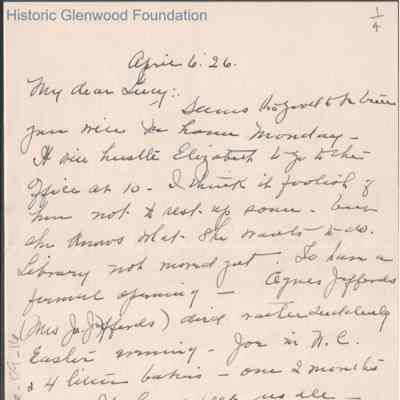 Historic Glenwood Foundation
1/4
April 6. 26.
My dear Lucy:.
Seems too good to be true
you will be home Monday -
It will hustle Elizabeth to go to the
Office at 10 - I think it foolish of
her not to rest up some - but
she knows what she wants to do.
Library not moved yet. To have a
formal opening - Agnes Jeffords
(Mrs Jo Jeffords) died rather suddenly
Easter evening - Joe in N.C.
& 4 little babies - one 2 months